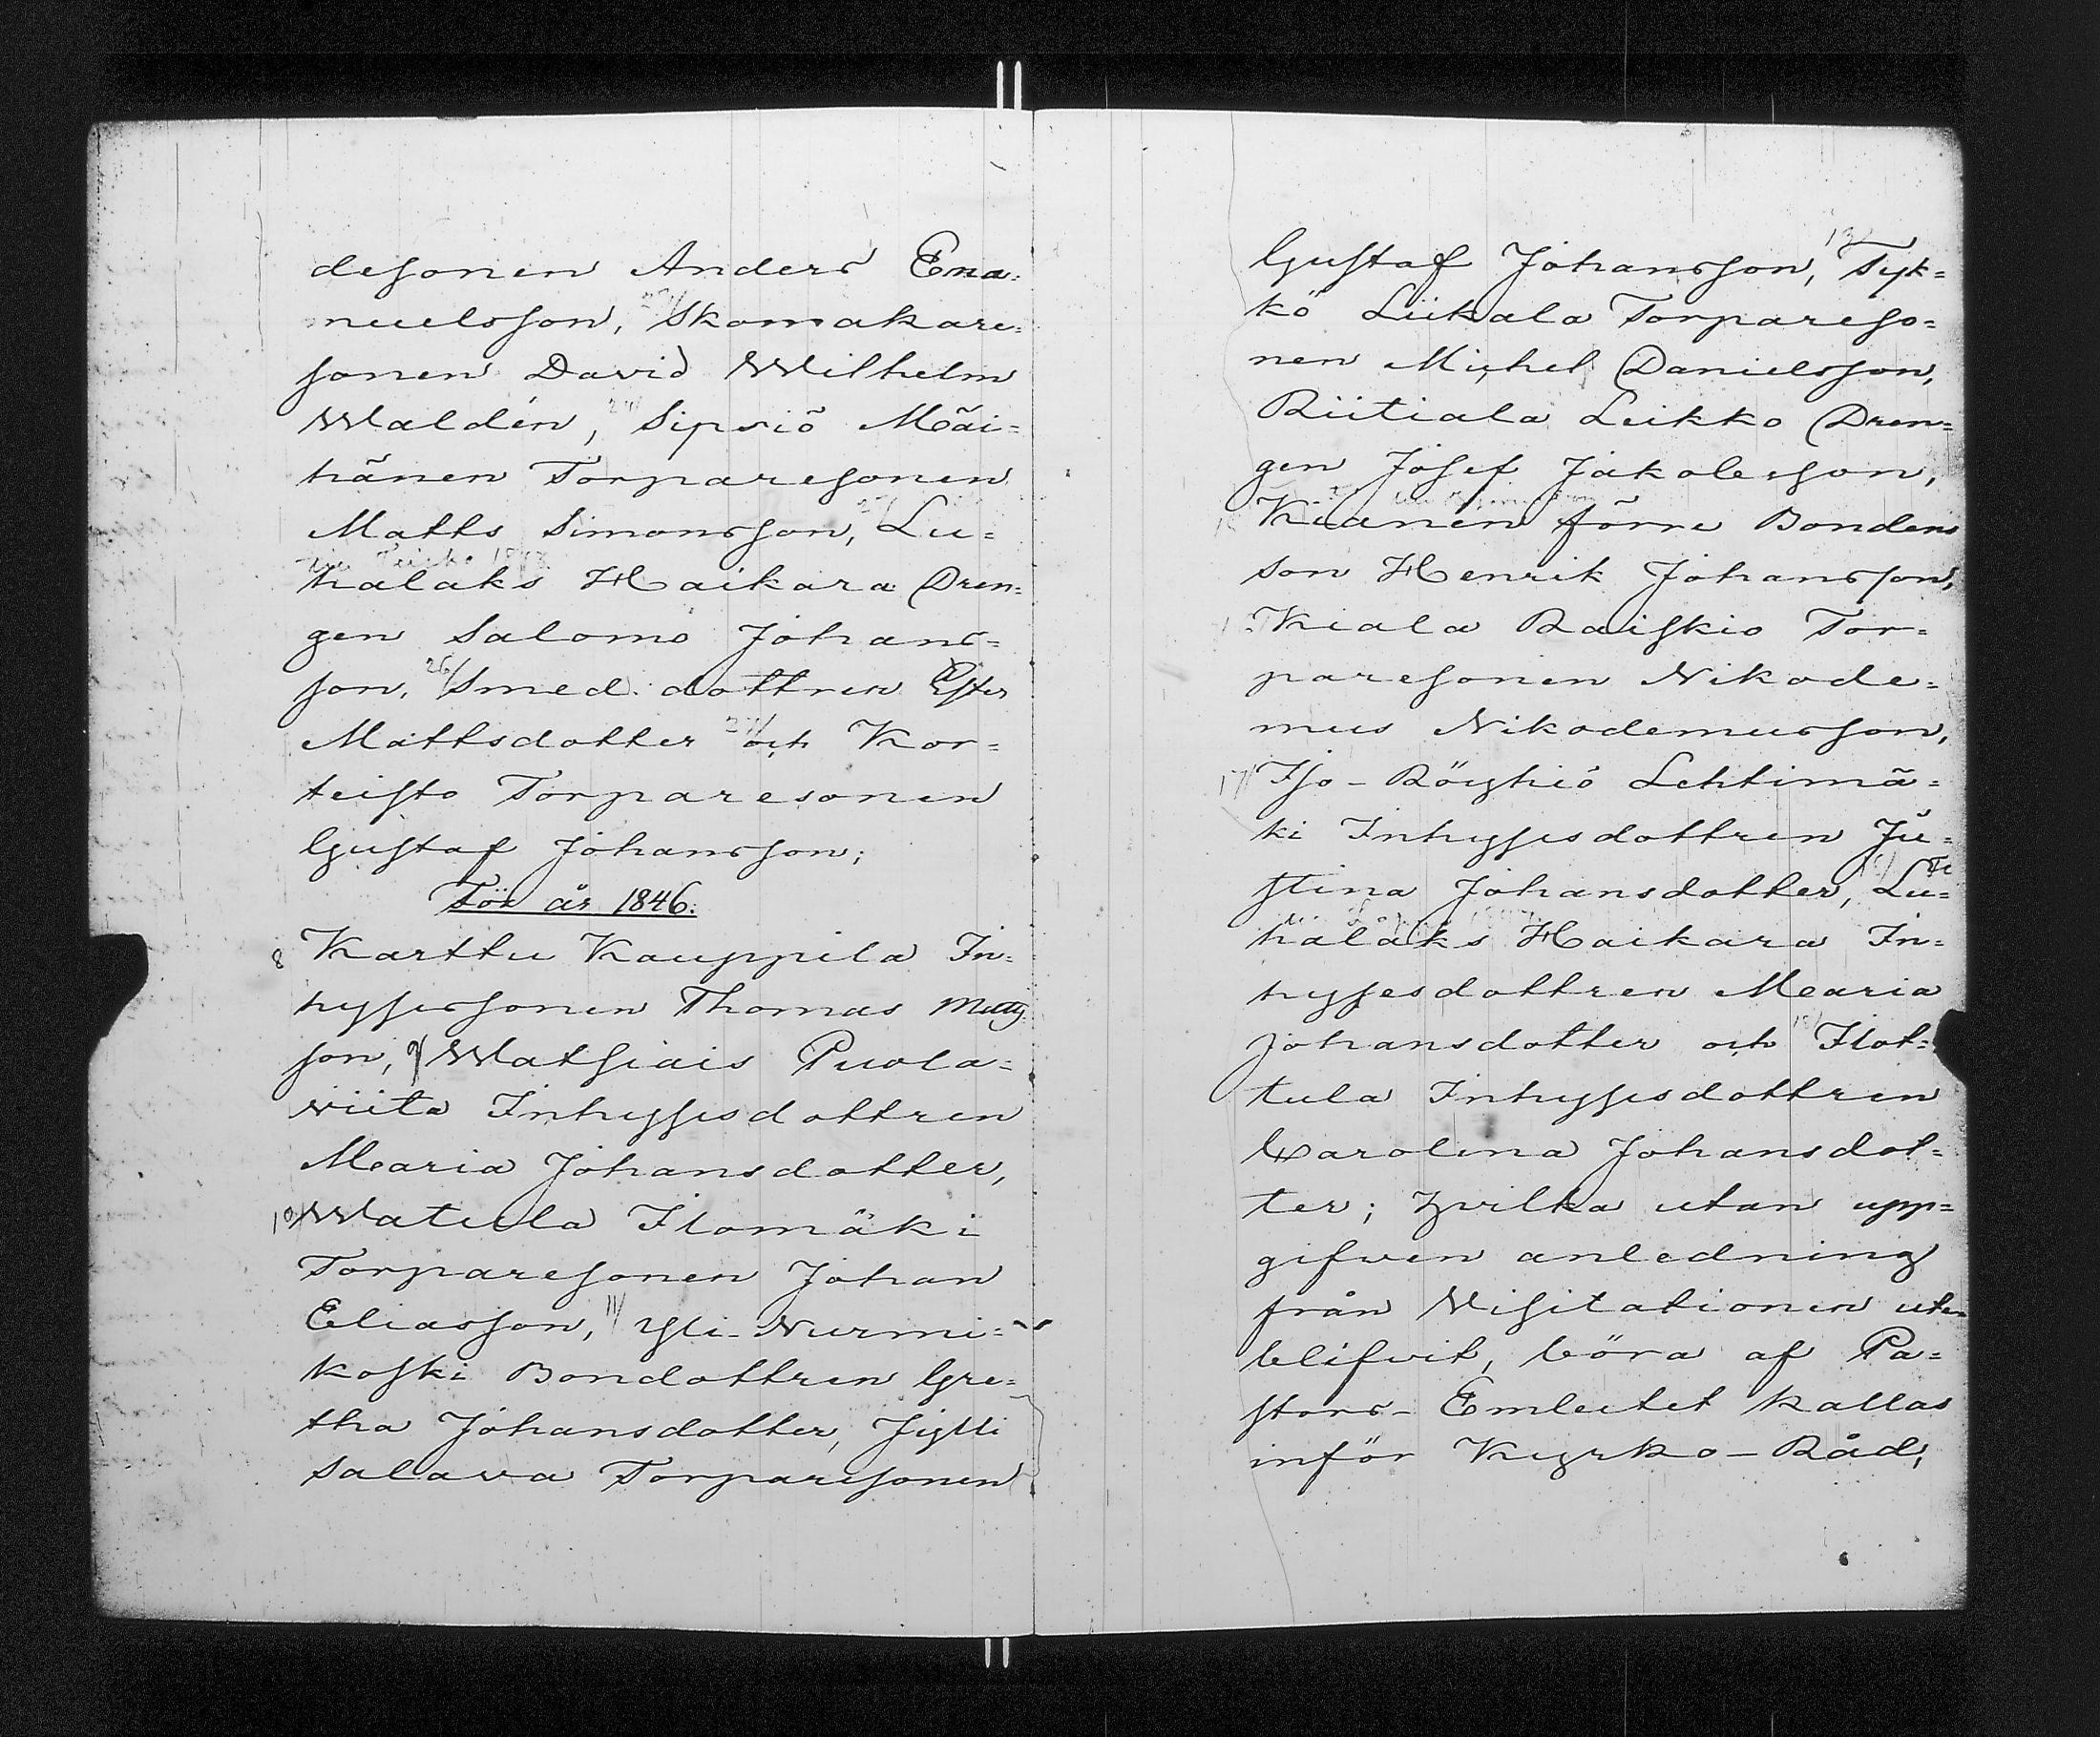 desonen Anders Ema=
nuelsson, Skomakare=
sonen David Wilhelm
Waldén, Sipsiö Mäi=
hänen Torparesonen
Matts Simonsson, Lu=
halaks Haikara Dren=
gen Salomo Johans=
son, 26/ Smed. dottren Ester
Mattsdotter 27/ och Kor=
teisto Torparesonen
Gustaf Johansson;
För år 1846.
8 Karttu Kauppila In=
hysessonen Thomas Matts
son, 9/ Watsiais Puola=
viita Inhysesdottren
Maria Johansdotter,
10/ Watula Ilomäki
Torparesonen Johan
Eliasson, 11/ Yli-Nurmi=
koski Bondottren Gre=
tha Johansdotter, Jylli
Salava Torparesonen
Gustaf Johansson, 13/ Tyk=
kö Liikala Torpareso=
nen Michel Danielsson,
Riitiala Leikko Dren=
gen Josef Jakobsson,
Kianen förre Bondens
son Henrik Johansson,
Kiala Raiskio Tor=
paresonen Nikode=
mus Nikodemusson,
17/ Iso-Röyhiö Lehtimä=
ki Inhysesdottren Ju=
stina Johansdotter, Lu=
halaks Haikara In=
hysesdottren Maria
Johansdotter och Ilot=
tula Inhysesdottren
Carolina Johansdot=
ter; hvilka utan upp=
gifven anledning
från Visitationen ute
blifvit, böra af Pa=
stors-Embetet kallas
inför Kyrko-Råd,